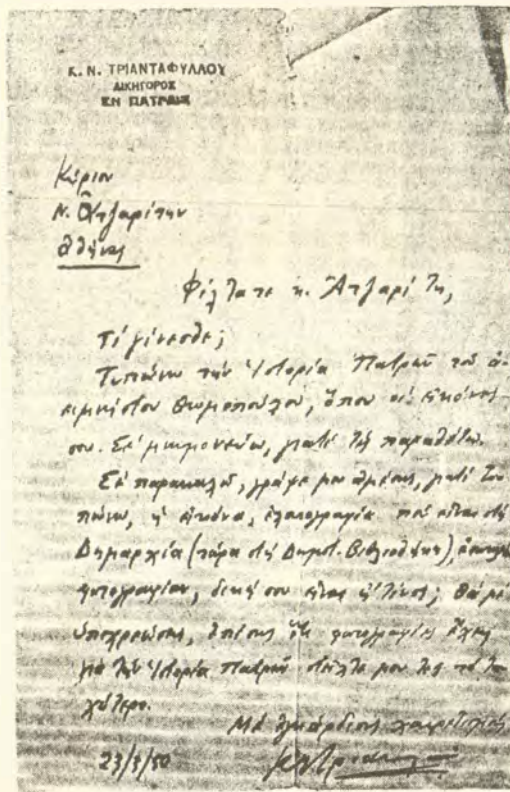 Κ. Ν. ΤΡΙΑΝΤΑΦΥΛΛΟΥ
ΔΙΚΗΓΟΡΟΣ
ΕΝ ΠΑΤΡΑΙΣ
Κύριον
Ν. Ἀτζαρίτην
Ἀθήνας
Φίλτατε κ. Ἀτζαρίτη,
Τί γίνεσθε;
Τυπώνω τήν Ἱστορία Πατρῶν τοῦ ἀ-
ειμνήστου Θωμοπούλου, ὅπου οἱ εἰκόνες
σου. Σέ μνημονεύω, γιατί τίς παραθέτω.
Σέ παρακαλῶ, γράψε μου ἀμέσως, γιατί τυ-
πώνω, ἡ εἰκόνα, ἐλαιογραφία πού εἶναι στή
Δημαρχία (τώρα στή Δημοτ. Βιβλιοθήκη),
φωτογραφίαν, δική σου εἶναι ἤ τίνος; Θά μέ
ὑποχρεώσης, ἐπίσης ὅτι φωτογραφίες ἔχης
γιά τήν Ἱστορία Πατρῶν στεῖλτε μου τες τό τα-
χύτερο.
Μέ ἐγκάρδιους χαιρετισμούς
23/3/50